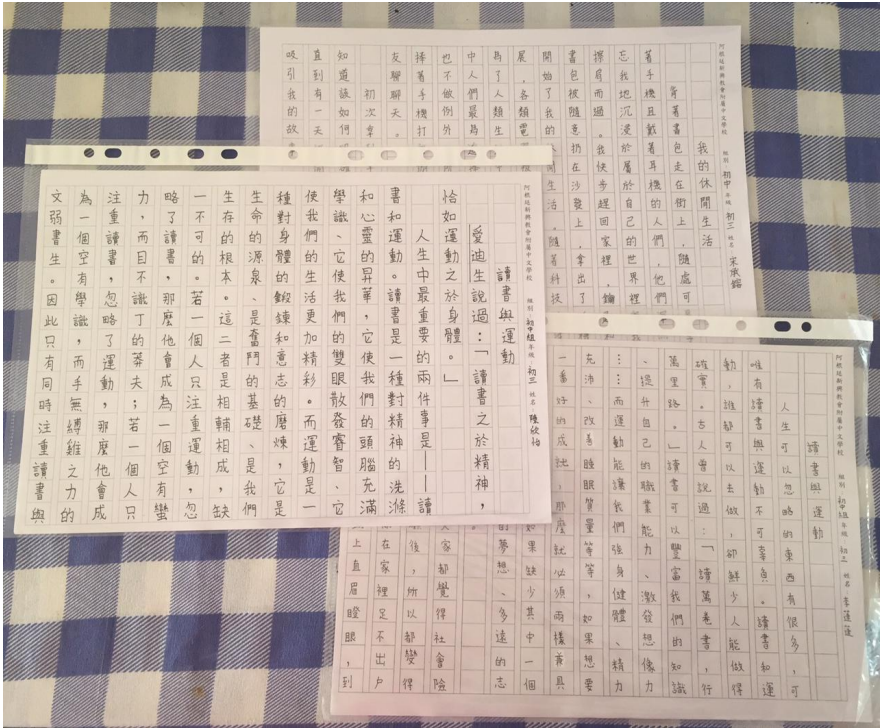 阿根廷新興教會附屬中文學校 組別 初中 年級 初三 姓名 宋承
我的休閒生活
背著書包走在街上,隨處可
著手機且戴著耳機的人們,他們
忘我地沉浸於屬於自己的世界裡
擦肩而過。我快步趕回家裡,鑰
書包被隨意扔在沙發上,拿出了
開始了我的休閒生活。隨著科技
展,各類電
為了人類生
中人們最為
也不做例外
捧著手機打
友聊聊天。
初次拿
知道該如何
直到有一天
吸引我的故
阿根廷新興教會附屬中文學校 組別 初中組 年級 初三 姓名 陳欣怡
讀書與運動
愛迪生說過:「讀書之於精神,
恰如運動之於身體。」
人生中最重要的兩件事是——讀
書和運動。讀書是一種對精神的洗滌
和心靈的昇華,它使我們的頭腦充滿
學識、它使我們的雙眼散發睿智、它
使我們的生活更加精彩。而運動是一
種對身體的鍛鍊和意志的磨煉,它是
生命的源泉、是奮鬥的基礎、是我們
生存的根本。這二者是相輔相成,缺
一不可的。若一個人只注重運動,忽
略了讀書,那麼他會成為一個空有蠻
力,而目不識丁的莽夫;若一個人只
注重讀書,忽略了運動,那麼他會成
為一個空有學識,而手無縛雞之力的
文弱書生。因此只有同時注重讀書與
阿根廷新興教會附屬中文學校 組別 初中組 年級 初三 姓名 李蓮蓮
讀書與運動
人生可以忽略的東西有很多,可
唯有讀書與運動不可辜負。讀書和運
動,誰都可以去做,卻鮮少人能做得
確實。古人曾說過:「讀萬卷書,行
萬里路。」讀書可以豐富我們的知識
、提升自己的職業能力、激發想像力
……而運動能讓我們強身健體、精力
充沛、改善睡眠質量等等,如果想要
一番好的成就,那麼就必須兩樣兼具
如果缺少其中一個
的夢想、多遠的志
大家都覺得社會險
後,所以都變得
在家裡足不出戶
上直眉瞪眼,到